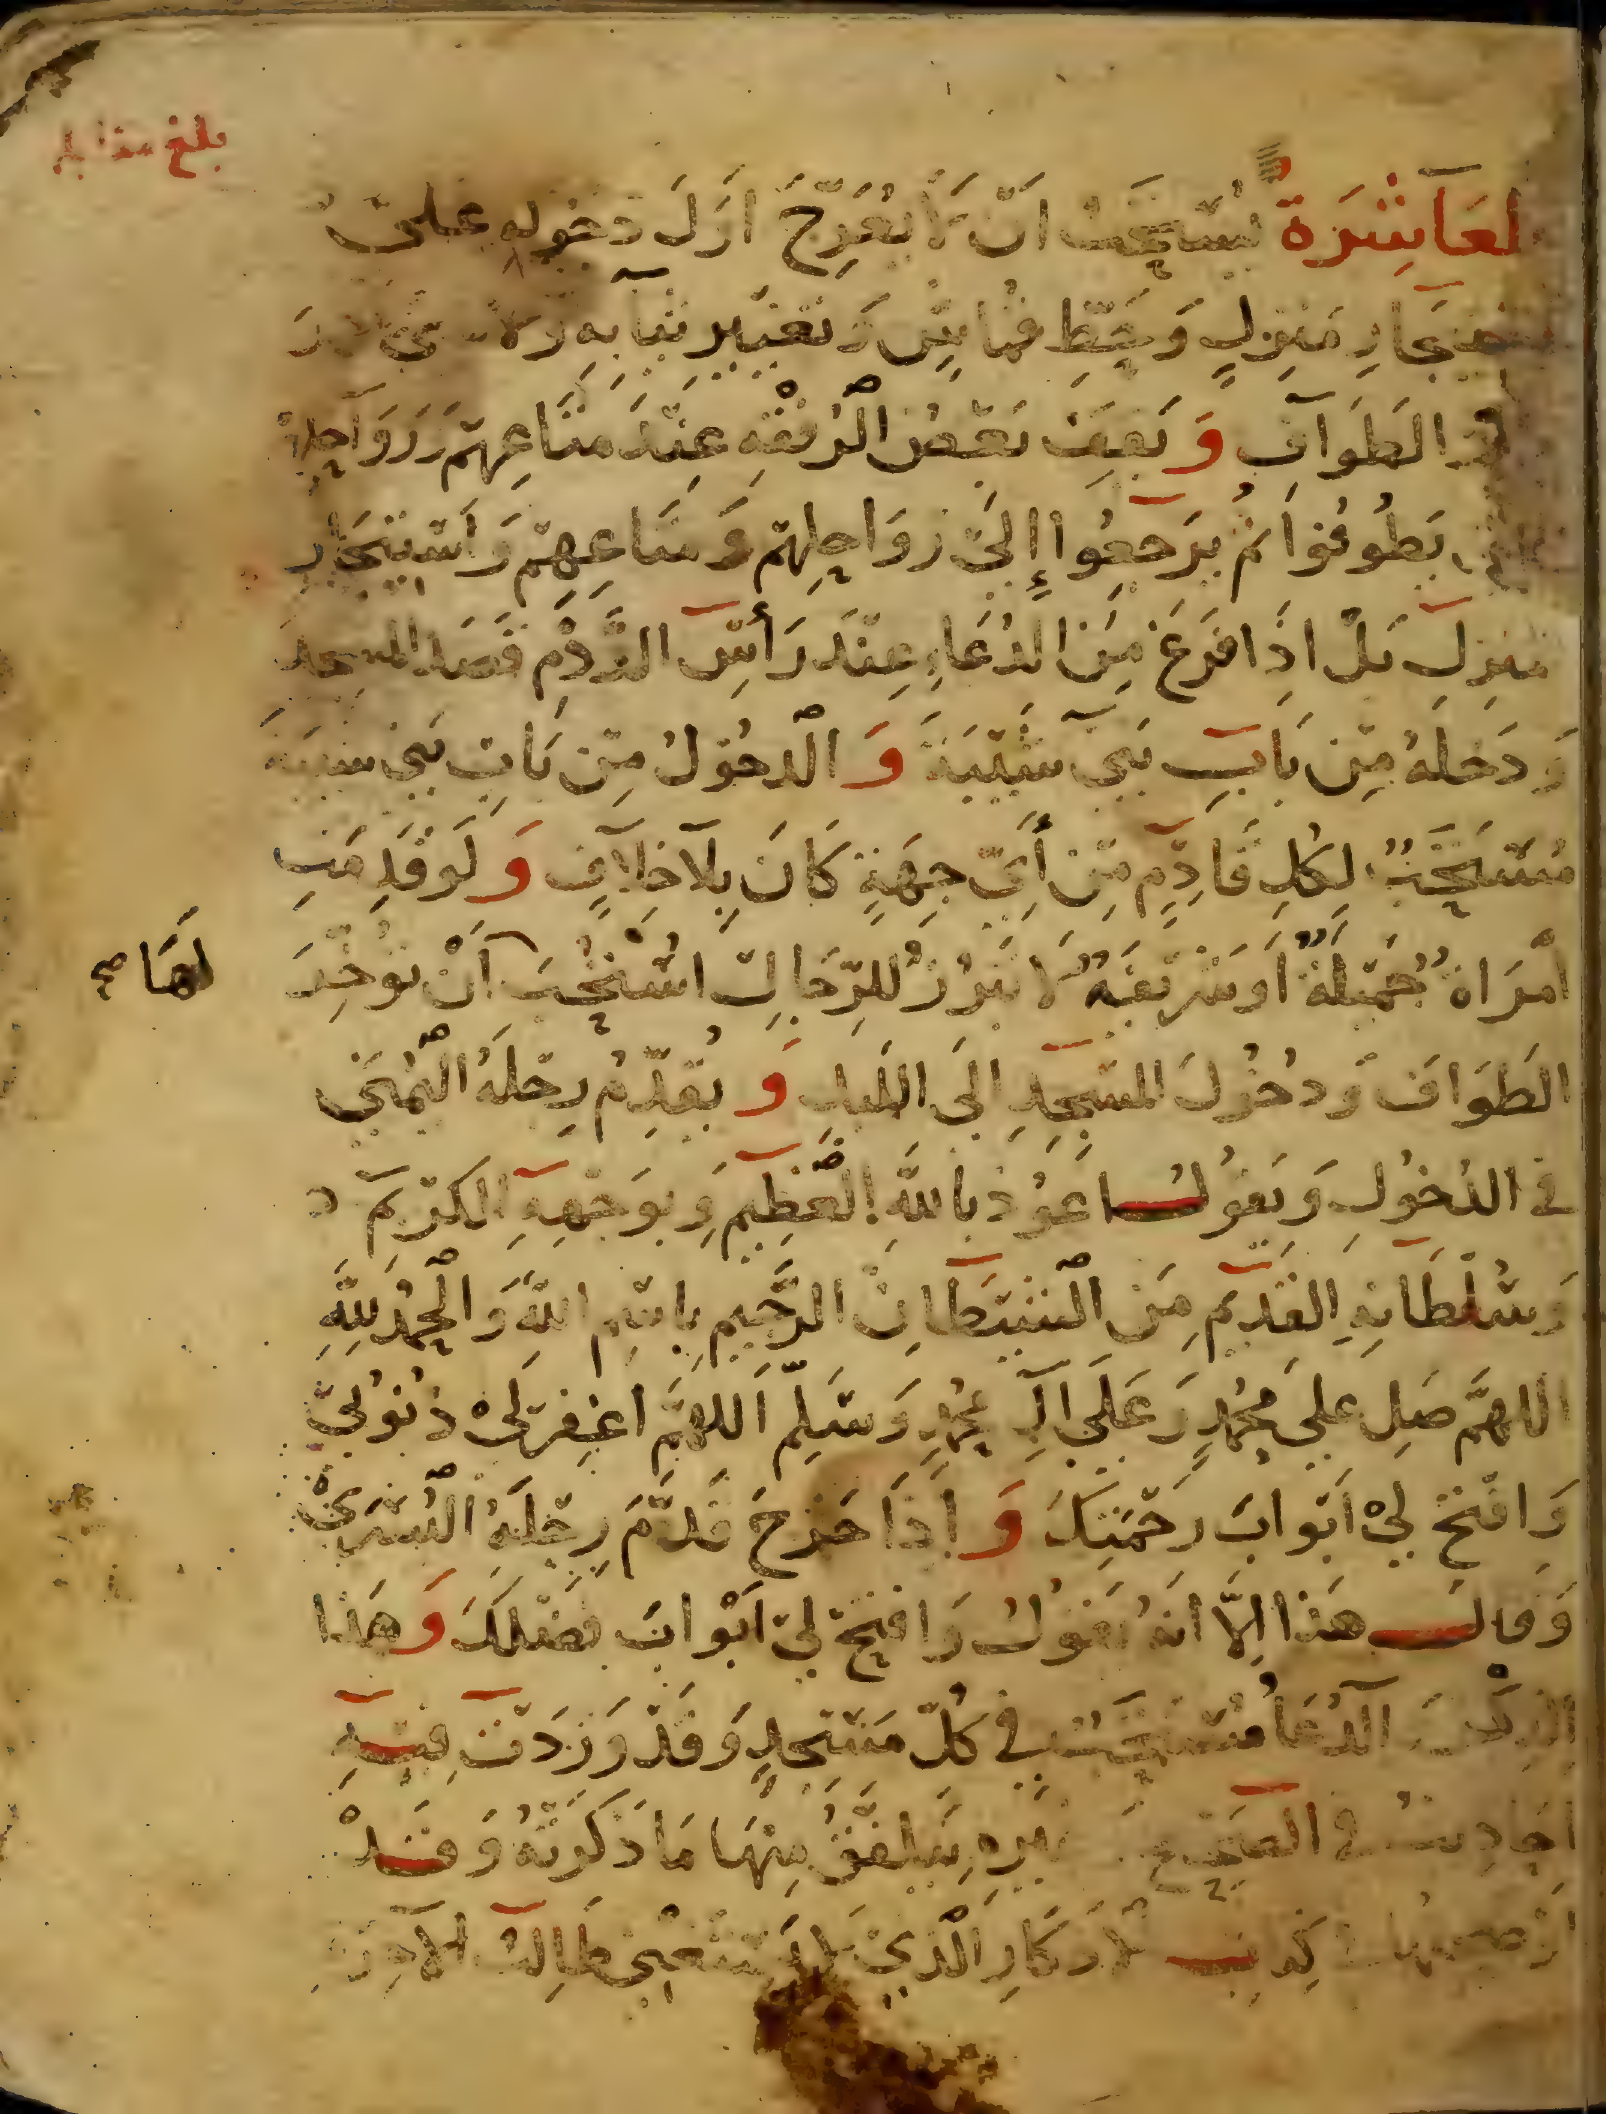 بلغ مقابلة
العَاشِرَة يُسْتَحَبُّ أَنْ لَا يُعَرِّجَ أَوَّلَ دُخُولِهِ عَلَى
اسْتِئْجَارِ مَنْزِلٍ وَحَطِّ قُمَاشٍ وَتَغْيِيرِ ثِيَابِهِ وَلَا شَيْءٍ
الطَّوَافِ وَيَقِفَ بَعْضُ الرُّفْقَةِ عِنْدَ مَتَاعِهِمْ وَرَوَاحِلِهِمْ
يَطُوفُوا ثُمَّ يَرْجِعُوا إِلَى رَوَاحِلِهِمْ وَمَتَاعِهِمْ وَاسْتِئْجَارِ
مَنْزِلٍ بَلْ إِذَا فَرَغَ مِنَ الدُّعَاءِ عِنْدَ رَأْسِ الرَّدْمِ قَصَدَ الْمَسْجِدَ
وَدَخَلَهُ مِنْ بَابِ بَنِي شَيْبَةَ وَالدُّخُولُ مِنْ بَابِ بَنِي شَيْبَةَ
مُسْتَحَبٌّ لِكُلِّ قَادِمٍ مِنْ أَيِّ جِهَةٍ كَانَ بِلَا خِلَافٍ وَلَوْ قَدِمَتِ
امْرَأَةٌ جَمِيلَةٌ أَوْ شَرِيفَةٌ لَا تَبْرُزُ لِلرِّجَالِ اسْتُحِبَّ أَنْ تُؤَخِّرَ
لَهَا صح
الطَّوَافَ وَدُخُولَ الْمَسْجِدِ إِلَى اللَّيْلِ وَيُقَدِّمُ رِجْلَهُ الْيُمْنَى
فِي الدُّخُولِ وَيَقُولُ أَعُوذُ بِاللَّهِ الْعَظِيمِ وَبِوَجْهِهِ الْكَرِيمِ
وَسُلْطَانِهِ الْقَدِيمِ مِنَ الشَّيْطَانِ الرَّجِيمِ بِاسْمِ اللَّهِ وَالْحَمْدُ لِلَّهِ
اللهُمَّ صَلِّ عَلَى مُحَمَّدٍ وَعَلَى آلِ مُحَمَّدٍ وَسَلِّمْ اللهُمَّ اغْفِرْ لِي ذُنُوبِي
وَافْتَحْ لِي أَبْوَابَ رَحْمَتِكَ وَإِذَا خَرَجَ قَدَّمَ رِجْلَهُ الْيُسْرَى
وَقَالَ هَذَا إِلَّا أَنَّهُ يَقُولُ وَافْتَحْ لِي أَبْوَابَ فَضْلِكَ وَهَذَا
الذِّكْرُ الدُّعَاءُ مُسْتَحَبٌّ فِي كُلِّ مَسْجِدٍ وَقَدْ وَرَدَتْ فِيهِ
أَحَادِيثُ فِي الصَّحِيحِ غَيْرِهِ يَتَلَفَّقُ مِنْهَا مَا ذَكَرْتُهُ وَقَدْ
كِتَابِ الْأَذْكَارِ الَّذِي لَا يَسْتَغْنِي طَالِبُ الْآخِرَةِ